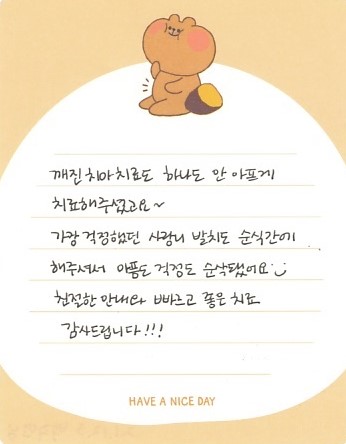 깨진 치아치료도 하나도 안 아프게
치료해주셨고요~
가장 걱정했던 사랑니 발치도 순식간에
해주셔서 아픔도 걱정도 순삭됐어요
친절한 안내와 빠르고 좋은 치료
감사드립니다!!!
HAVE A NICE DAY